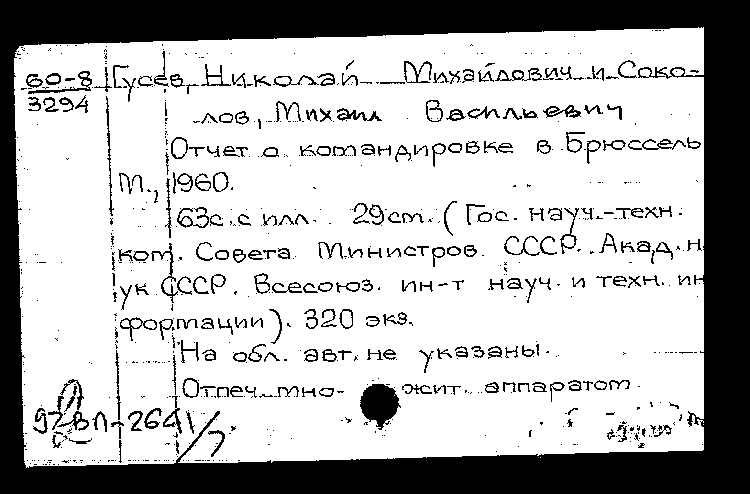 60-8 Гусев, Николай Михайлович и Соко-
3294 лов, Михаил Васильевич
Отчет о командировке в Брюссель
М., 1960.
63с. с илл. 29см. (Гос. науч.-техн.
ком. Совета Министров СССР. Акад. н
ук СССР. Всесоюз. ин-т науч. и техн. ин
формации). 320 экз.
На обл. авт. не указаны.
Отпеч. мно- жит. аппаратом.